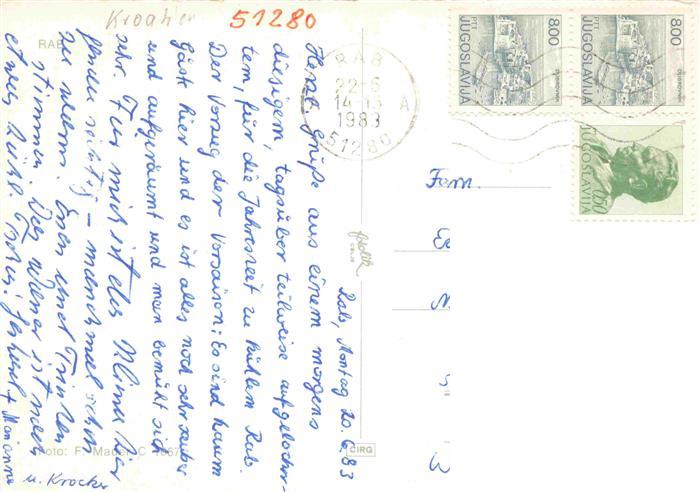 Kroaher
51280
RAB
RAB
22-6
14-15 A
1983
51280
PTT
JUGOSLAVIJA
8.00
DUBROVNIK
PTT
JUGOSLAVIJA
8.00
DUBROVNIK
JUGOSLAVIJA
0.50
Fam.
Rab, Montag 20.6.83
Herzl. Grüße aus einem morgens
diesigem, tagsüber teilweise aufgelocker-
tem, für die Jahreszeit zu kühlem Rab.
Der Vorzug der Vorsaison: Es sind kaum
Gäste hier und es ist alles noch sehr sauber
und aufgeräumt und man bemüht sich
sehr. Für mich ist das Klima hier
genau richtig – manchmal schon
zu warm. Essen und Trinken
stimmen. Das Wasser ist noch
etwas kühl. Tschüs!
+ Marianne
u. Krocher
Foto: F. Mader, C 1067
CIRG